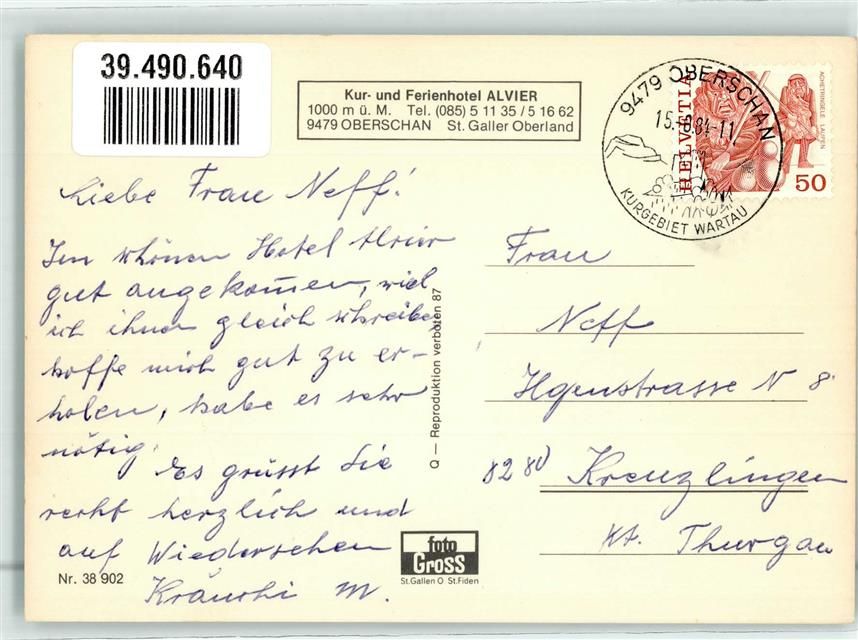 39.490.640
Kur- und Ferienhotel ALVIER
1000 m ü. M. Tel. (085) 5 11 35 / 5 16 62
9479 OBERSCHAN St. Galler Oberland
9479 OBERSCHAN
15.-8.84-11
KURGEBIET WARTAU
HELVETIA
ACHETRINGELE LAUPEN
50
Liebe Frau Neff!
Im schönen Hotel Alvier
gut angekommen, will
ich ihnen gleich schreiben
hoffe mich gut zu er-
holen, habe es sehr
nötig.
Es grüsst Sie
recht herzlich und
auf Wiedersehen
M.
Frau
Neff
N 8
8280 Kreuzlingen
Kt. Thurgau
Q — Reproduktion verboten 87
foto
GROSS
St.Gallen O St.Fiden
Nr. 38 902